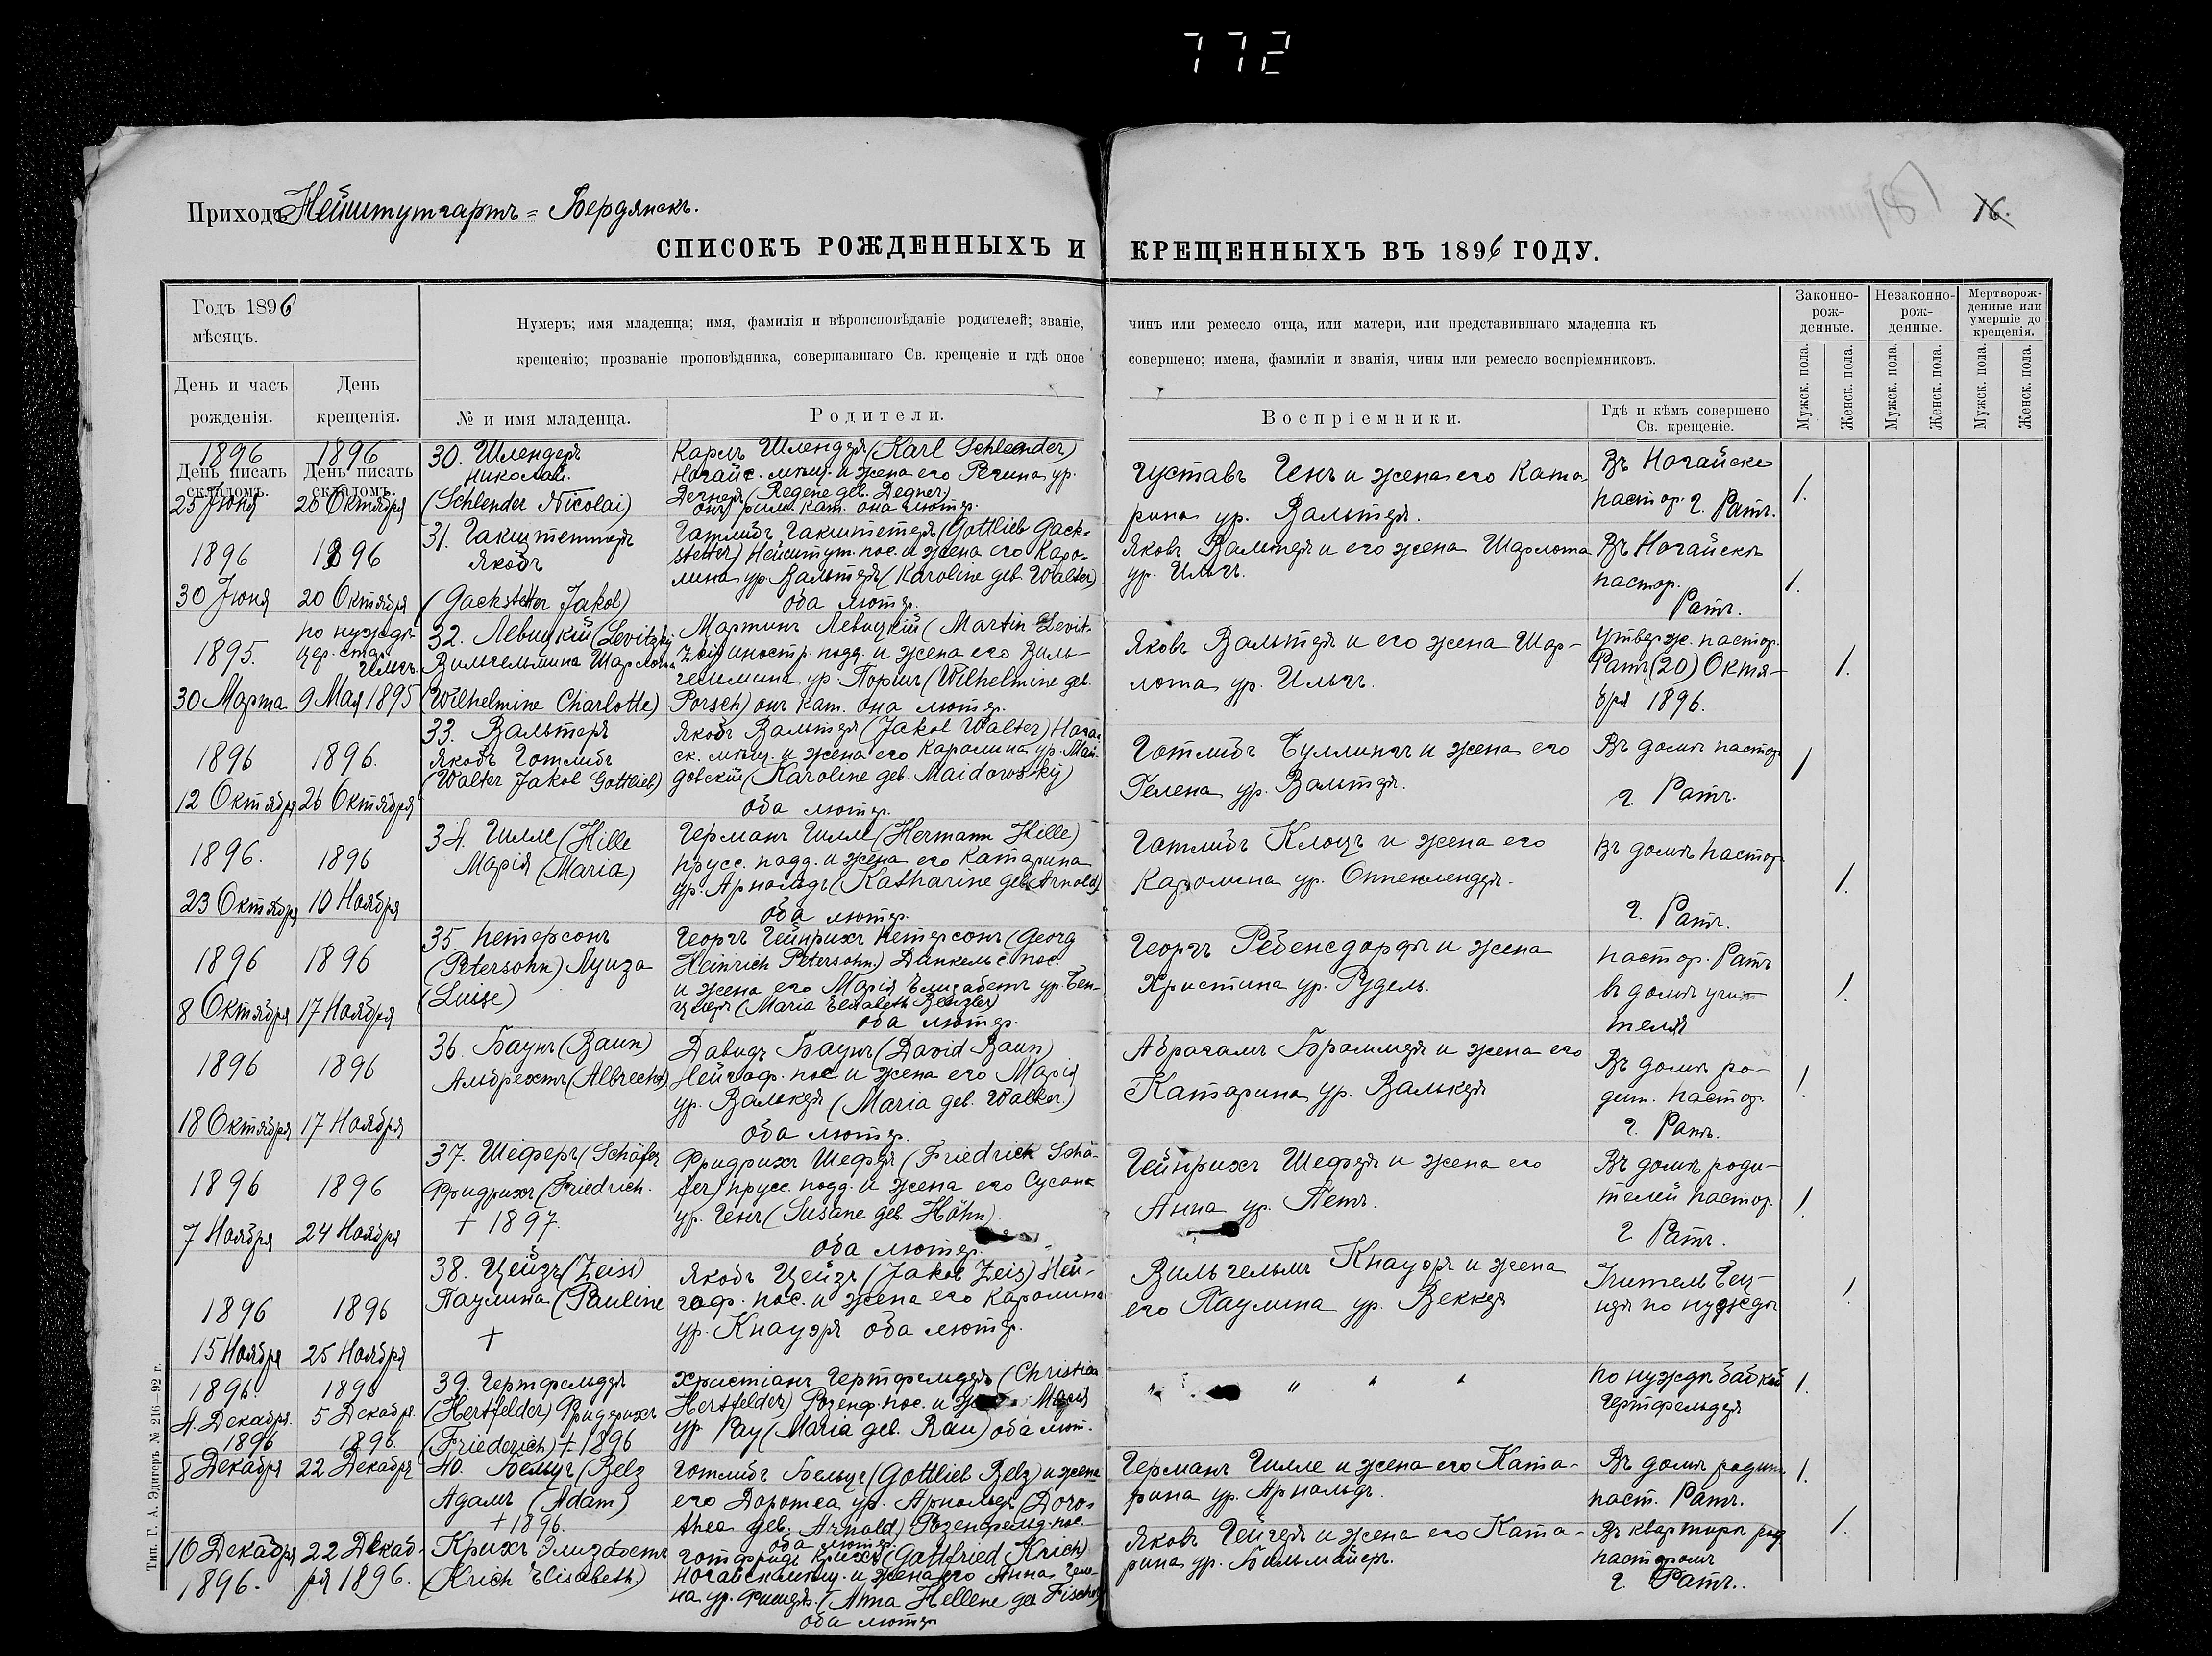 772
Приходъ Нейштутгартъ = Бердянскъ.
16.
СПИСОКЪ РОЖДЕННЫХЪ И КРЕЩЕННЫХЪ ВЪ 1896 ГОДУ.
Годъ 1896
мѣсяцъ.
День и часъ
рожденія.
День
крещенія.
Нумеръ; имя младенца; имя, фамилія и вѣроисповѣданіе родителей; званіе, чинъ или ремесло отца, или матери, или представившаго младенца къ
крещенію; прозваніе проповѣдника, совершавшаго Св. крещеніе и гдѣ оное совершено; имена, фамиліи и званія, чины или ремесло воспріемниковъ.
№ и имя младенца.
Родители.
Воспріемники.
Гдѣ и кѣмъ совершено
Св. крещеніе.
Законно-
рож-
денные.
Незаконно-
рож-
денные.
Мертворож-
денные или
умершіе до
крещенія.
Мужск. пола.
Женск. пола.
Мужск. пола.
Женск. пола.
Мужск. пола.
Женск. пола.
1896
День писать
складомъ.
25 Июня
1896
День писать
складомъ.
20 Октября
30. Шлендеръ
Николай.
(Schlender Nicolai)
Карлъ Шлендеръ (Karl Schlender)
Ногайс. мѣщ. и жена его Регина ур.
Дегнеръ (Regene geb. Degner)
онъ рим. кат. она лютер.
Густавъ Генъ и жена его Ката-
рина ур. Вальтеръ.
Въ Ногайске
пастор. г. Ратъ.
1.
1896
30 Июня
1896
20 Октября
31. Гакштеттеръ
Якобъ
(Gackstetter Jakob)
Готлибъ Гакштетеръ (Gottlieb Gack-
stetter) Нейштут. пос. и жена его Каро-
лина ур. Вальтеръ (Karoline geb. Walter)
оба лютер.
Яковъ Вальтеръ и его жена Шарлота
ур. Ильгъ.
Въ Ногайскѣ
пастор.
Ратъ.
1.
1895.
30 Марта
по нуждѣ
цер. стар.
Ильгъ
9 Мая 1895
32. Левицкій (Levitzky
Вильгельмина Шарлота
(Wilhelmine Charlotte)
Мартинъ Левицкій (Martin Levit-
zky) иностр. подд. и жена его Виль-
гельмина ур. Поршъ (Wilhelmine geb.
Porsch) онъ кат. она лютер.
Яковъ Вальтеръ и его жена Шар-
лота ур. Ильгъ.
Утвержд. пастор.
Ратъ (20) Октя-
бря 1896.
1.
1896
12 Октября
1896.
26 Октября
33. Вальтеръ
Якобъ Готлибъ
(Walter Jakob Gottlieb)
Якобъ Вальтеръ (Jakob Walter) Ногай-
ск. мѣщ. и жена его Каролина ур. Май-
довскій (Karoline geb. Maidowsky)
оба лютер.
Готлибъ Буллингъ и жена его
Гелена ур. Вальтеръ.
Въ домѣ пастор
г. Ратъ.
1
1896.
23 Октября
1896
10 Ноября
34. Гилле (Hille
Марія (Maria)
Германъ Гилле (Hermann Hille)
прусс. подд. и жена его Катарина
ур. Арнольдъ (Katharine geb. Arnold)
оба лютер.
Готлибъ Клоцъ и жена его
Каролина ур. Оппенлендеръ.
Въ домѣ пастор
г. Ратъ.
1.
1896
8 Октября
1896
17 Ноября
35. Петерсонъ
(Petersohn) Луиза
(Luise)
Георгъ Гейнрихъ Петерсонъ (Georg
Heinrich Petersohn) Динкельс. пос.
и жена его Марія Елизабетъ ур. Бен-
цлеръ (Maria Elisabeth Benzler)
оба лютер.
Георгъ Ребенсдорфъ и жена
Христина ур. Рудель.
пастор. Ратъ
въ домѣ учи-
теля
1.
1896
18 Октября
1896
17 Ноября
36. Баунъ (Baun)
Альбрехтъ (Albrecht)
Давидъ Баунъ (David Baun)
Нейгоф. пос. и жена его Марія
ур. Валькеръ (Maria geb. Walker)
оба лютер.
Абрагамъ Броммеръ и жена его
Катарина ур. Валькеръ
Въ домѣ ро-
дит. пастор.
г. Ратъ.
1.
1896
7 Ноября
1896
24 Ноября
37. Шеферъ (Schäfer
Фридрихъ (Friedrich.
+ 1897.
Фридрихъ Шеферъ (Friedrich Schä-
fer) прусс. подд. и жена его Сусана
ур. Генъ (Susane geb. Höhn).
оба лютер.
Гейнрихъ Шеферъ и жена его
Анна ур. Петъ.
Въ домѣ роди-
телей пастор.
г Ратъ.
1.
1896
15 Ноября
1896
25 Ноября
38. Цейзъ (Zeiss)
Паулина (Pauline
+
Якобъ Цейзъ (Jakob Zeis) Ней-
гоф. пос. и жена его Каролина
ур. Кнауэръ оба лютер.
Вильгельмъ Кнауэръ и жена
его Паулина ур. Веккеръ
Учитель
по нуждѣ
1.
1896.
4. Декабря.
1896
5 Декабря.
39. Гертфельдеръ
(Hertfelder) Фридерихъ
(Friederich) + 1896
Христіанъ Гертфельдеръ (Christian
Hertfelder) Розенф. пос. и Марія
ур. Рау (Maria geb. Rau) оба лют.
" " " "
по нуждѣ бабкой
Гертфельдеръ
1.
1896
8 Декабря
1896.
22 Декабря
40. Бельцъ (Belz
Адамъ (Adam)
+ 1896.
Готлибъ Бельцъ (Gottlieb Belz) и жена
его Доротеа ур. Арнольдъ (Doro-
thea geb. Arnold) Розенфельд. пос.
оба лютер.
Германъ Гилле и жена его Ката-
рина ур. Арнольдъ.
Въ домѣ родит.
паст. Ратъ.
1.
10 Декабря
1896.
22 Декаб-
ря 1896.
Крихъ Элизабетъ
(Krich Elisabeth)
Готфридъ Крихъ (Gottfried Krich)
Ногайск. мѣщ. и жена его Анна Геле-
на ур. Фишеръ. (Anna Hellene geb Fischer)
оба лютер
Яковъ Гейгеръ и жена его Ката-
рина ур. Бильмайеръ.
Въ квартирѣ род.
пасторомъ
г. Ратъ.
1.
Тип. Г. А. Эдигеръ № 216—92 г.